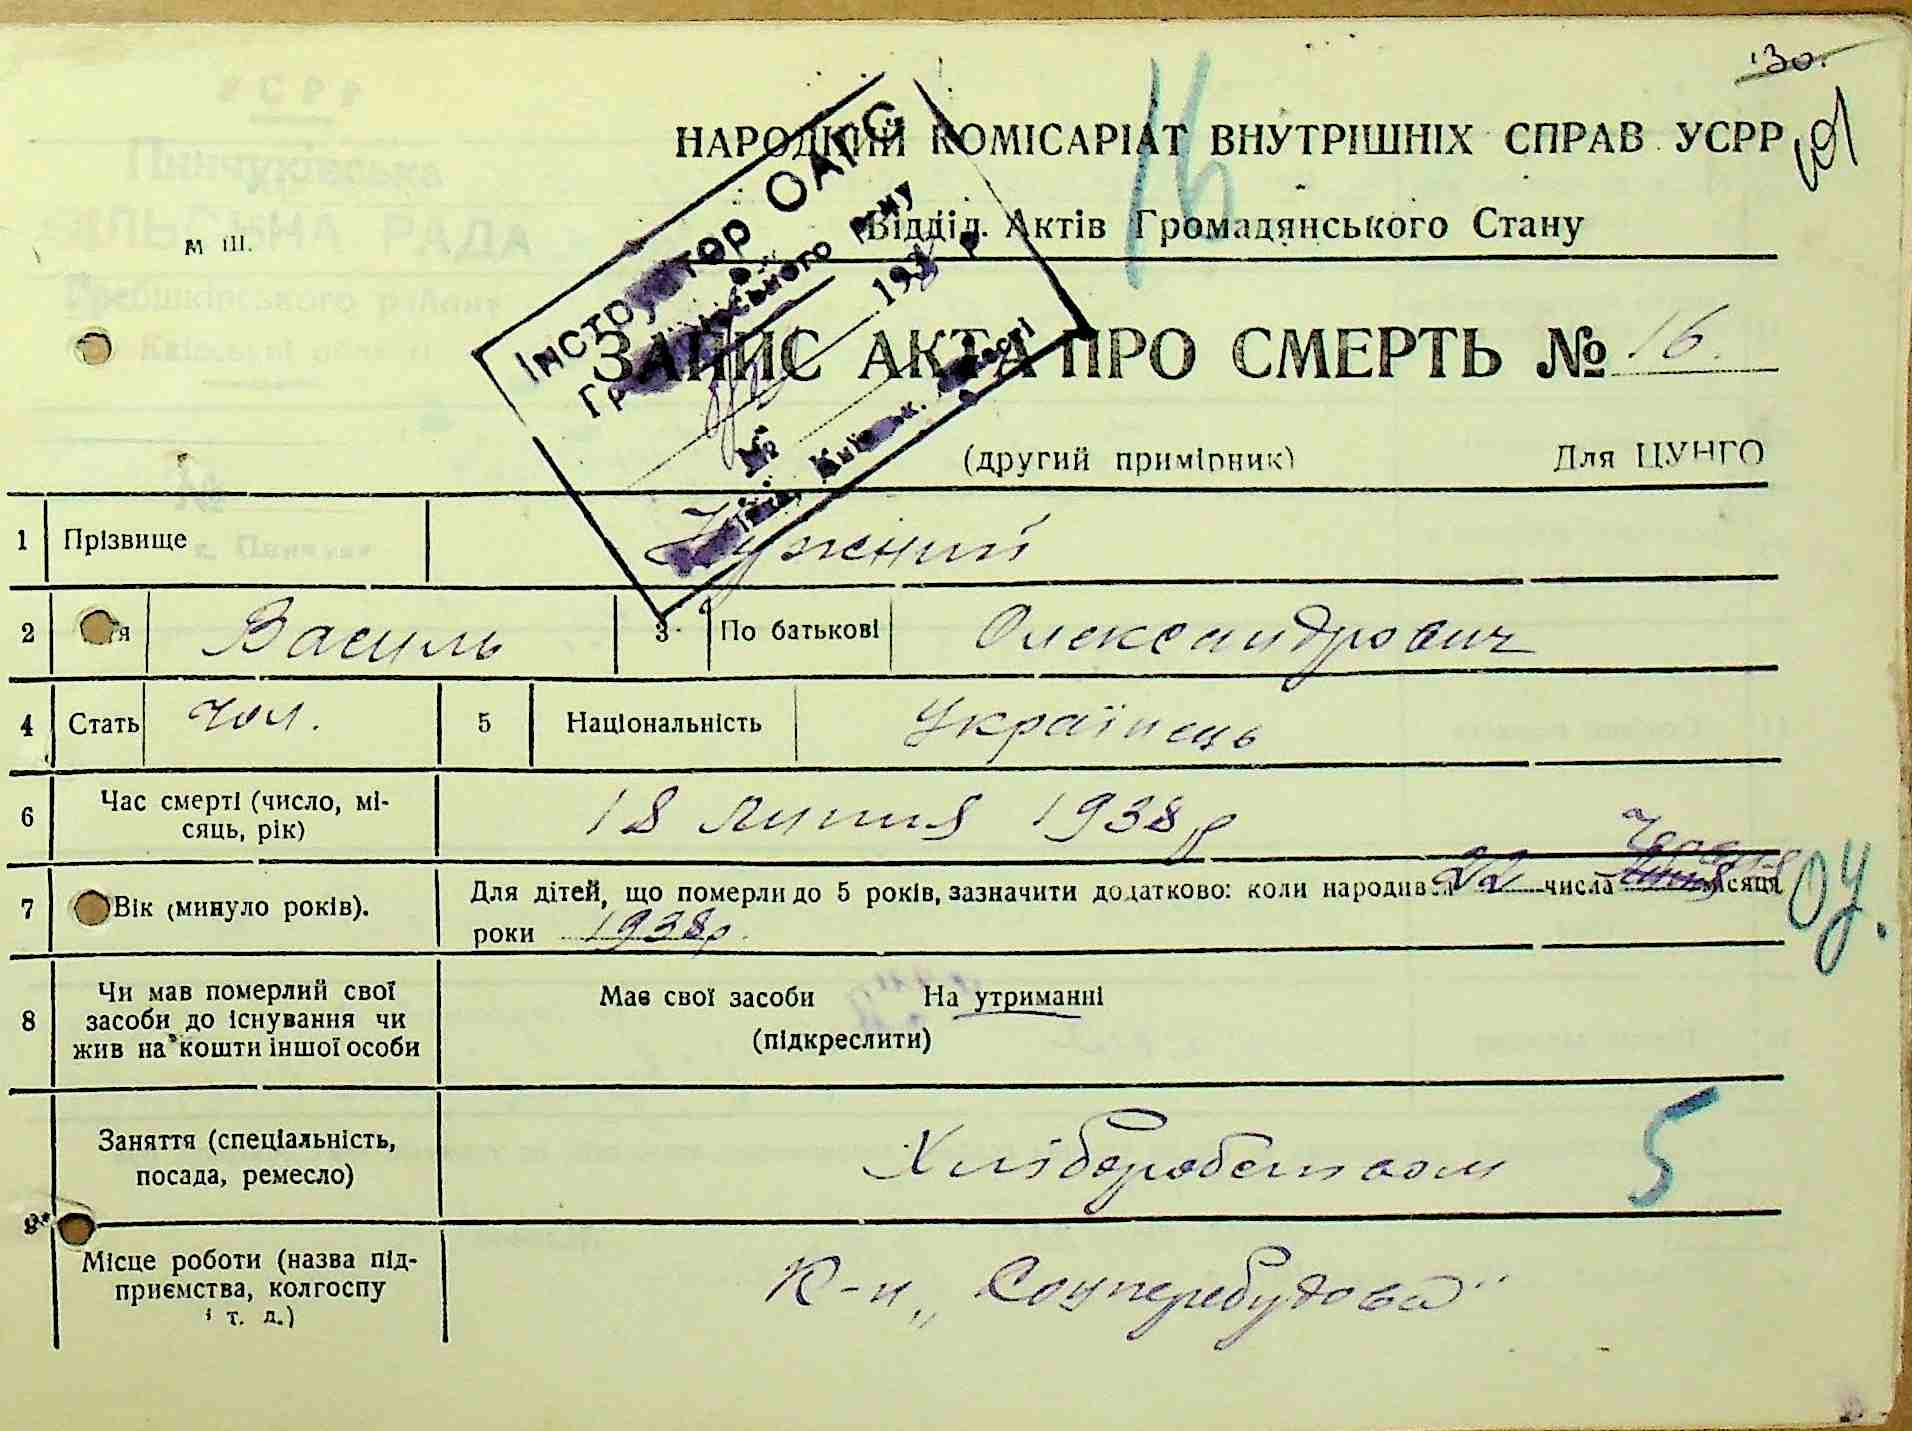 130.
101
НАРОДНИЙ КОМІСАРІАТ ВНУТРІШНІХ СПРАВ УСРР
16
Відділ Актів Громадянського Стану
м III.
Інструктор ОАГС
193 р
ЗАПИС АКТА ПРО СМЕРТЬ № 16.
№
(другий примірник) Для ЦУНГО
1 Прізвище Нужний
2 Василь 3 По батькові Олександрович
4 Стать чол. 5 Національність Українець
6 Час смерті (число, мі-
сяць, рік) 18 липня 1938 р
7 Вік (минуло років). Для дітей, що померли до 5 років, зазначити додатково: коли народився 22 числа червня місяця
роки 1938 р.
0У.
8 Чи мав померлий свої
засоби до існування чи
жив на кошти іншої особи
Має свої засоби На утриманні
(підкреслити)
Заняття (спеціальність,
посада, ремесло) Хліборобством 5
Місце роботи (назва під-
приємства, колгоспу
і т. д.) К-п „Соцперебудова"